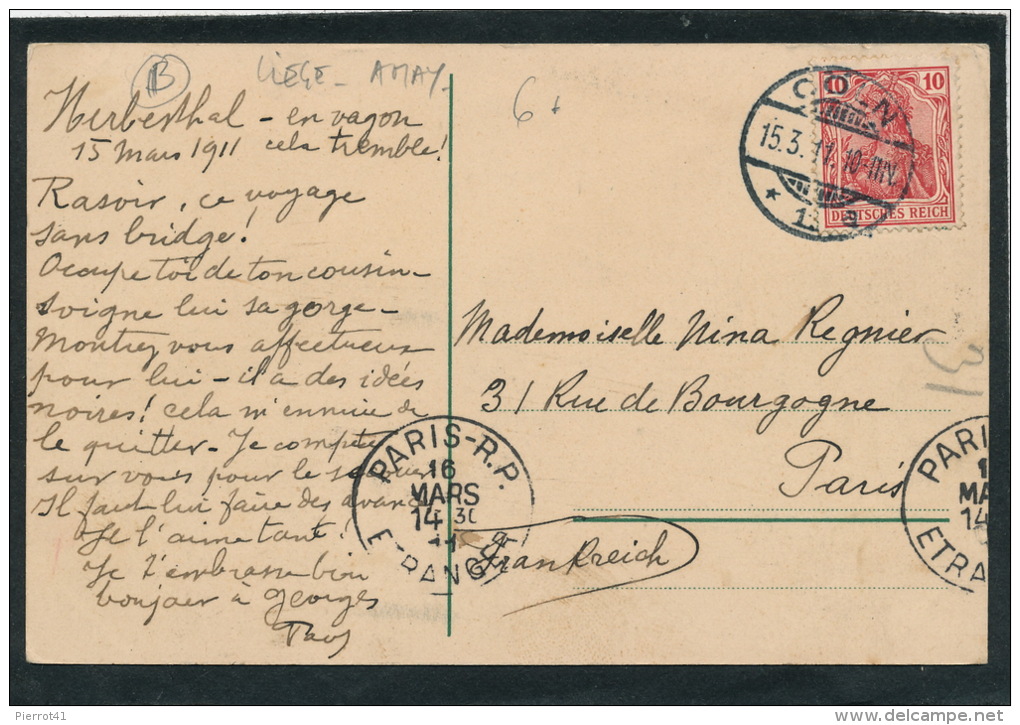 B
LIEGE - AMAY -
6
Herbesthal - en vagon
15 Mars 1911 cela tremble!
Rasoir, ce voyage
sans bridge!
Occupe toi de ton cousin -
soigne lui sa gorge -
Montrez vous affectueux
pour lui - il a des idées
noires! cela m'ennuie de
le quitter - Je compte
sur vous pour le secouer
Il faut lui faire des avances
Je l'aime tant!
Je t'embrasse bien
bonjour à Georges
10 10
DEUTSCHES REICH
CÖLN
15.3.11. 10-11N.
* 1
Mademoiselle Nina Regnier
31 Rue de Bourgogne
Paris
Frankreich
31
PARIS-R.P.
16
MARS
14 30
11
ETRANGER
PARI
1
MA
14
ETRA
Pierrot41
www.delcampe.net